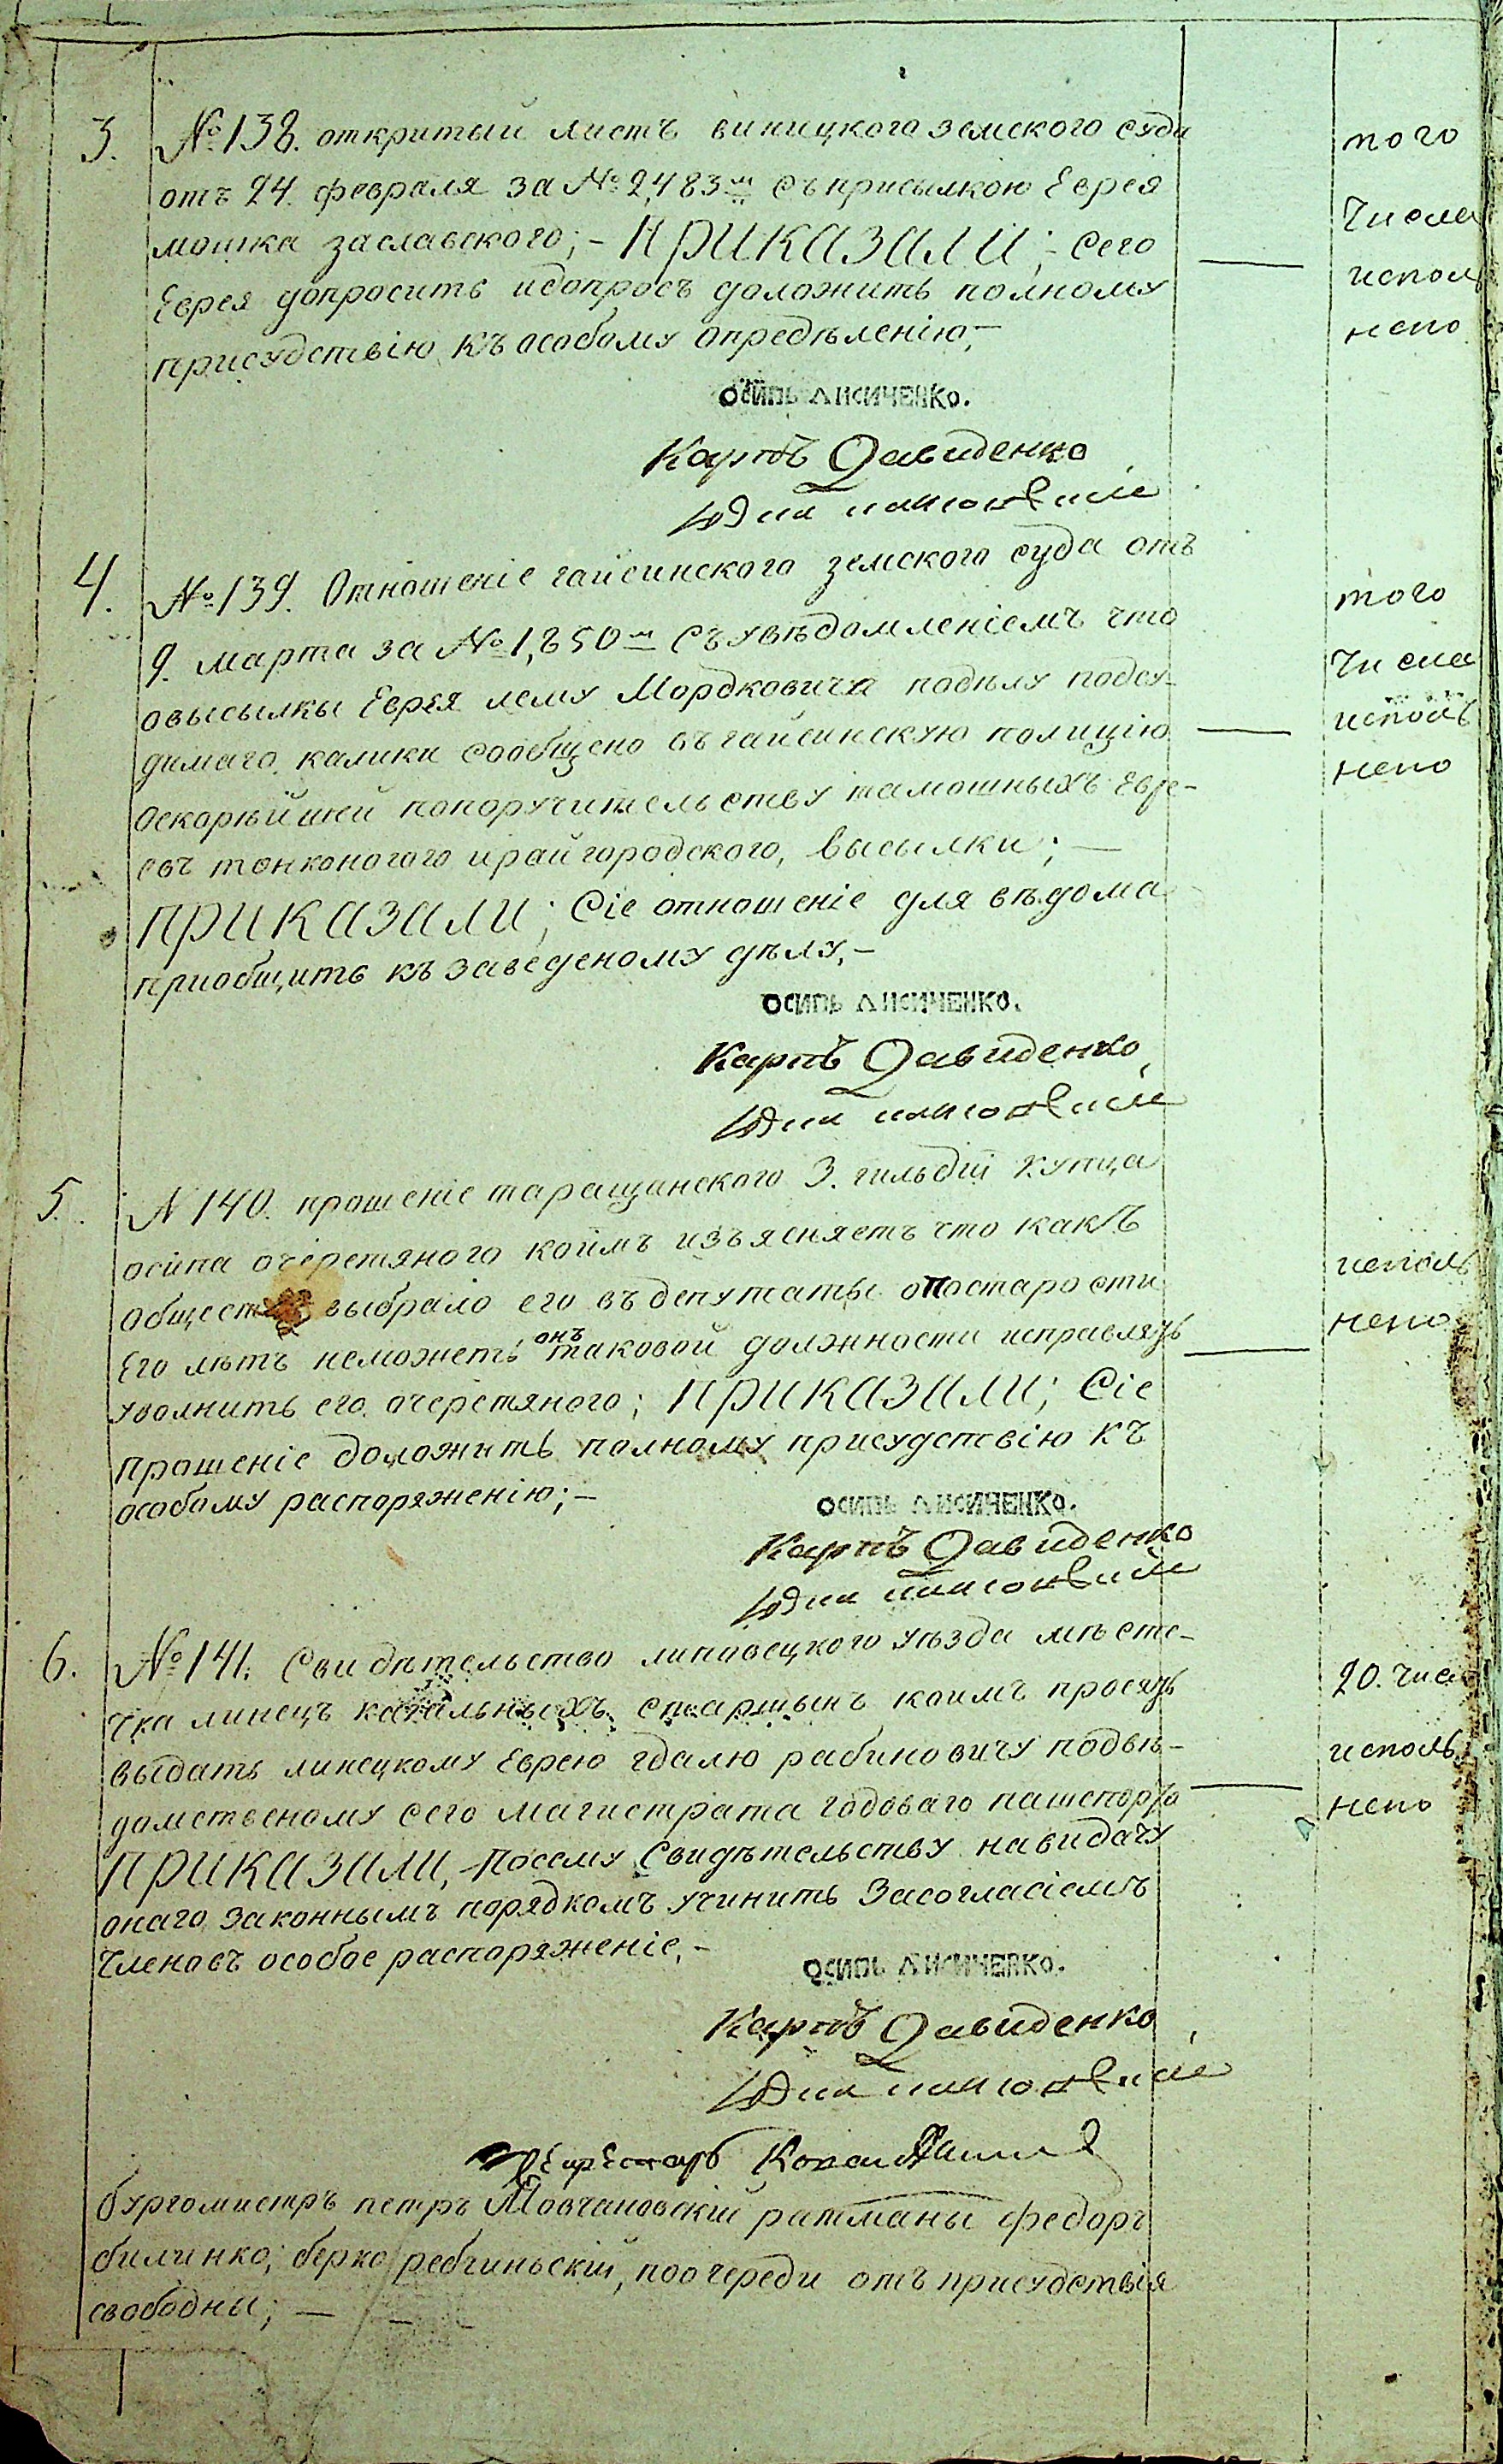 3. № 138. открытый листъ виницкого земского суда
отъ 24. февраля за № 2,483 съ присылкою Еврея
мошка заславского; – ПРИКАЗАЛИ; – сего
Еврея допросить идопросъ доложить полному
присудствію къ особому опредѣленію, –
того
числа
испол
нено
Осипъ Лисиченко.
Карпъ Давиденко
4. № 139. Отношеніе гайсинского земского суда отъ
9. марта за № 1,850 съ увѣдомленіемъ что
овысылкы Еврея лему Мордковича подѣлу подсу-
димаго калики сообщено въ гайсинскую полицію
оскорѣйшей попоручительству тамошныхъ Евре-
евъ тонконогого ирайгородского, высылки; –
ПРИКАЗАЛИ; Сіе отношеніе для вѣдома
приобщить къ заведеному дѣлу, –
того
числа
исполь
нено
Осипъ Лисиченко.
Карпъ Давиденко
5. N 140. прошеніе таращанского 3. гильдій купца
осипа очеретяного коимъ изъясняетъ что какъ
общество выбрало его въ депутаты о постарости
Его лѣтъ неможеть онъ таковой должности исправлять
уволнить его очеретяного; ПРИКАЗАЛИ; Сіе
прошеніе доложить полному присудствію къ
особому распоряженію; –
исполь
нено
Осипъ Лисиченко.
Карпъ Давиденко
6. № 141. Свидѣтельство липовецкого уѣзда мѣсте-
чка линецъ кагальныхъ старшынъ коимъ просять
выдать линецкому Еврею гдалю рабиновичу подвѣ-
домственому сего магистрата годоваго пашпорта
ПРИКАЗАЛИ, – Посему Свидѣтельству на видачу
онаго законнымъ порядкомъ учинить Засогласіемъ
Членовъ особое распоряженіе, –
20. числа
исполь
нено
Осипъ Лисиченко.
Карпъ Давиденко
Секретарь
бургомистръ петръ Мовчановскій ратманы федоръ
билинко; берко ребчиньскій, поочереди отъ присудствія
свободны; –